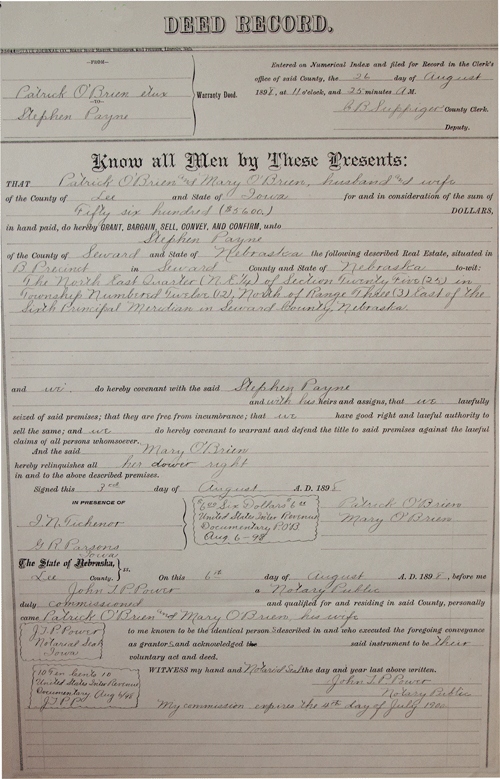 DEED RECORD.
—FROM—
Patrick O'Brien etux
—TO—
Stephen Payne
Warranty Deed.
Entered on Numerical Index and filed for Record in the Clerk's
office of said County, the 26 day of August
1898, at 11 o'clock, and 25 minutes A M.
County Clerk.
Deputy.
Know all Men by These Presents:
THAT Patrick O'Brien and Mary O'Brien, husband and wife
of the County of Lee and State of Iowa for and in consideration of the sum of
Fifty six hundred ($5600) DOLLARS,
in hand paid, do hereby GRANT, BARGAIN, SELL, CONVEY, AND CONFIRM, unto
Stephen Payne
of the County of Seward and State of Nebraska the following described Real Estate, situated in
B Precinct in Seward County and State of Nebraska to-wit:
The North East Quarter (N.E.¼) of Section Twenty Five (25) in
Township Numbered Twelve (12) North of Range Three (3) East of the
Sixth Principal Meridian in Seward County, Nebraska.
and we do hereby covenant with the said Stephen Payne
and with his heirs and assigns, that we lawfully
seized of said premises; that they are free from incumbrance; that we have good right and lawful authority to
sell the same; and we do hereby covenant to warrant and defend the title to said premises against the lawful
claims of all persons whomsoever.
And the said Mary O'Brien
hereby relinquishes all her dower right
in and to the above described premises.
Signed this 3rd day of August A. D. 1898
IN PRESENCE OF
Tichenor
G. R. Parsons
Iowa
$6.00 Six Dollars $6.00
United States Inter Revenue
Documentary P.O'B
Aug 6-98
Patrick O'Brien
Mary O'Brien
The State of Nebraska, } ss.
Lee County.
On this 6th day of August A. D. 1898, before me
John T. P. Power a Notary Public
duly commissioned and qualified for and residing in said County, personally
came Patrick O'Brien and Mary O'Brien, his wife
J. T. P. Power
Notarial Seal
Iowa
to me known to be the identical persons described in and who executed the foregoing conveyance
as grantors and acknowledged the said instrument to be their
voluntary act and deed.
10 Ten Cents 10
United States Inter Revenue
Documentary Aug 6/98
J.T.P.P.
WITNESS my hand and Notarial Seal the day and year last above written.
John T. P. Power
Notary Public
My commission expires the 4th day of July 1900